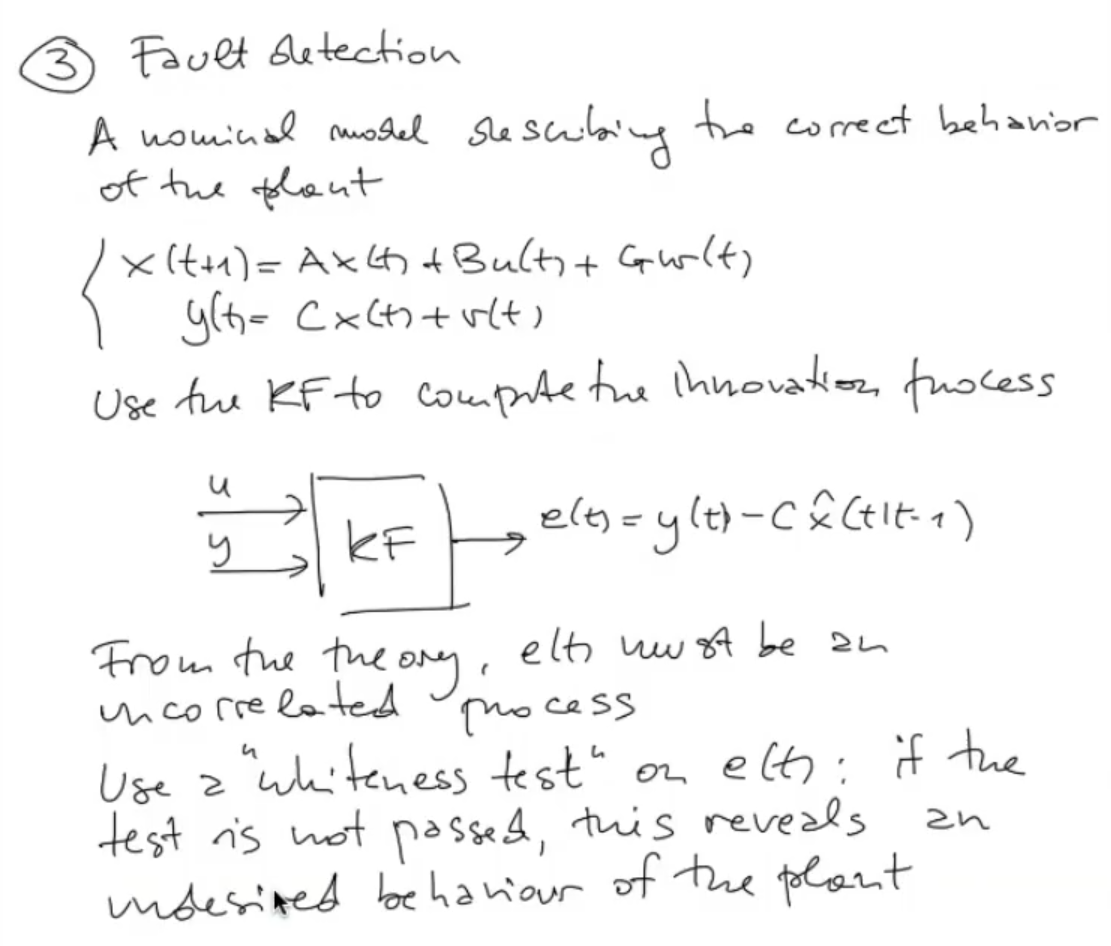 3 Fault detection
A nominal model describing the correct behavior
of the plant
x(t+1) = Ax(t) + Bu(t) + Gw(t)
y(t) = Cx(t) + v(t)
Use the KF to compute the innovation process
u
y
KF
e(t) = y(t) - C x̂(t|t-1)
From the theory, e(t) must be an
uncorrelated process
Use a "whiteness test" on e(t): if the
test is not passed, this reveals an
undesired behaviour of the plant